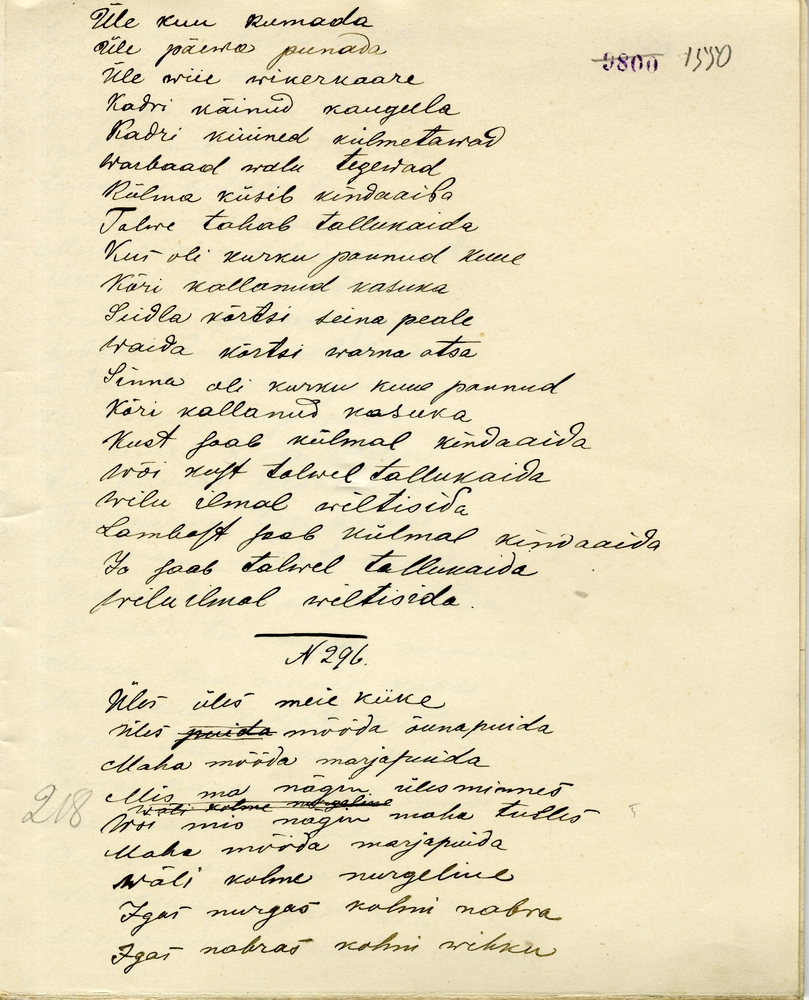 Üle kuu kumada
9800 1550
Üle päewa punada
Üle wiie wikerkaare
Kadri käinud kaugeela
Kadri küüned külmetawad
warbaad walu tegewad
Külma küsib kindaaida
Talwe tahab tallukaida
Kus oli kurku pannud kuue
Kõri kallanud kasuka
Siidla kõrtsi seina peale
waida kõrtsi warna otsa
Sinna oli kurku kuue pannud
Kõri kallanud kasuka
Kust saab külmal kindaaida
wõi kust talwel tallukaida
wilu ilmal wiltisida
Lambast saab külmal kindaaida
Ja saab talwel tallukaida
wilu ilmal wiltisida.
N 296.
Üles üles meie kiike
üles puida mööda õunapuida
Maha mööda marjapuida
Mis ma nägin üles minnes
wäli kolme nurgeline
Wõi mis nägin maha tulles
218
Maha mööda marjapuida
wäli kolme nurgeline
Igas nurgas kolmi nabra
Igas nabras kolmi wihku